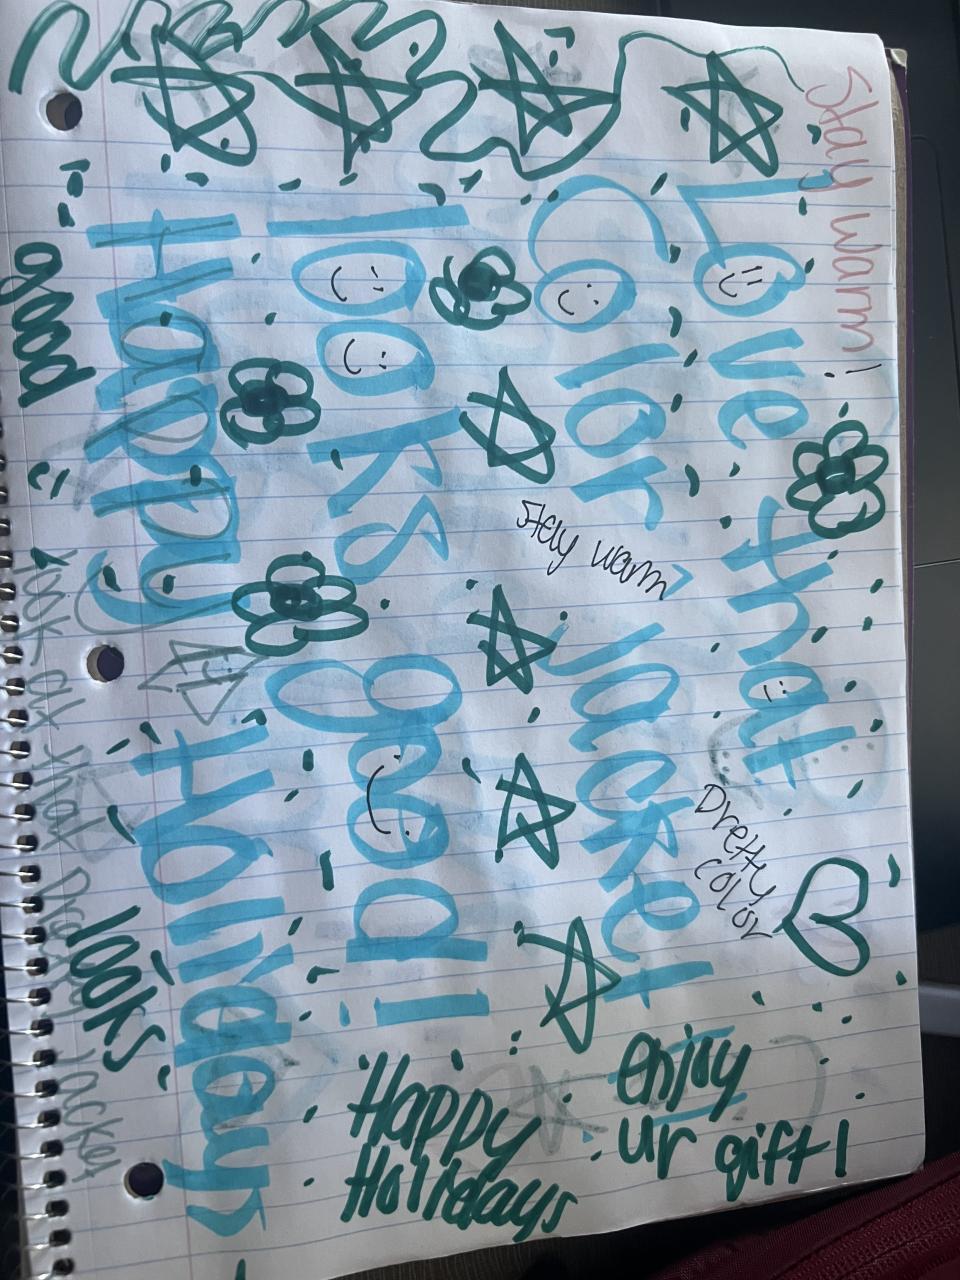 Stay warm!
Love that
Color Jacket
looks good!
Happy Holidays
stay warm
Pretty
color
enjoy
ur gift!
Happy
Holidays
good
looks